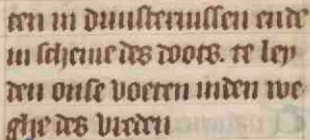 ten in duusternissen ende
in scheme des doots. te ley
den onse voeten inden we
ghe des vreden